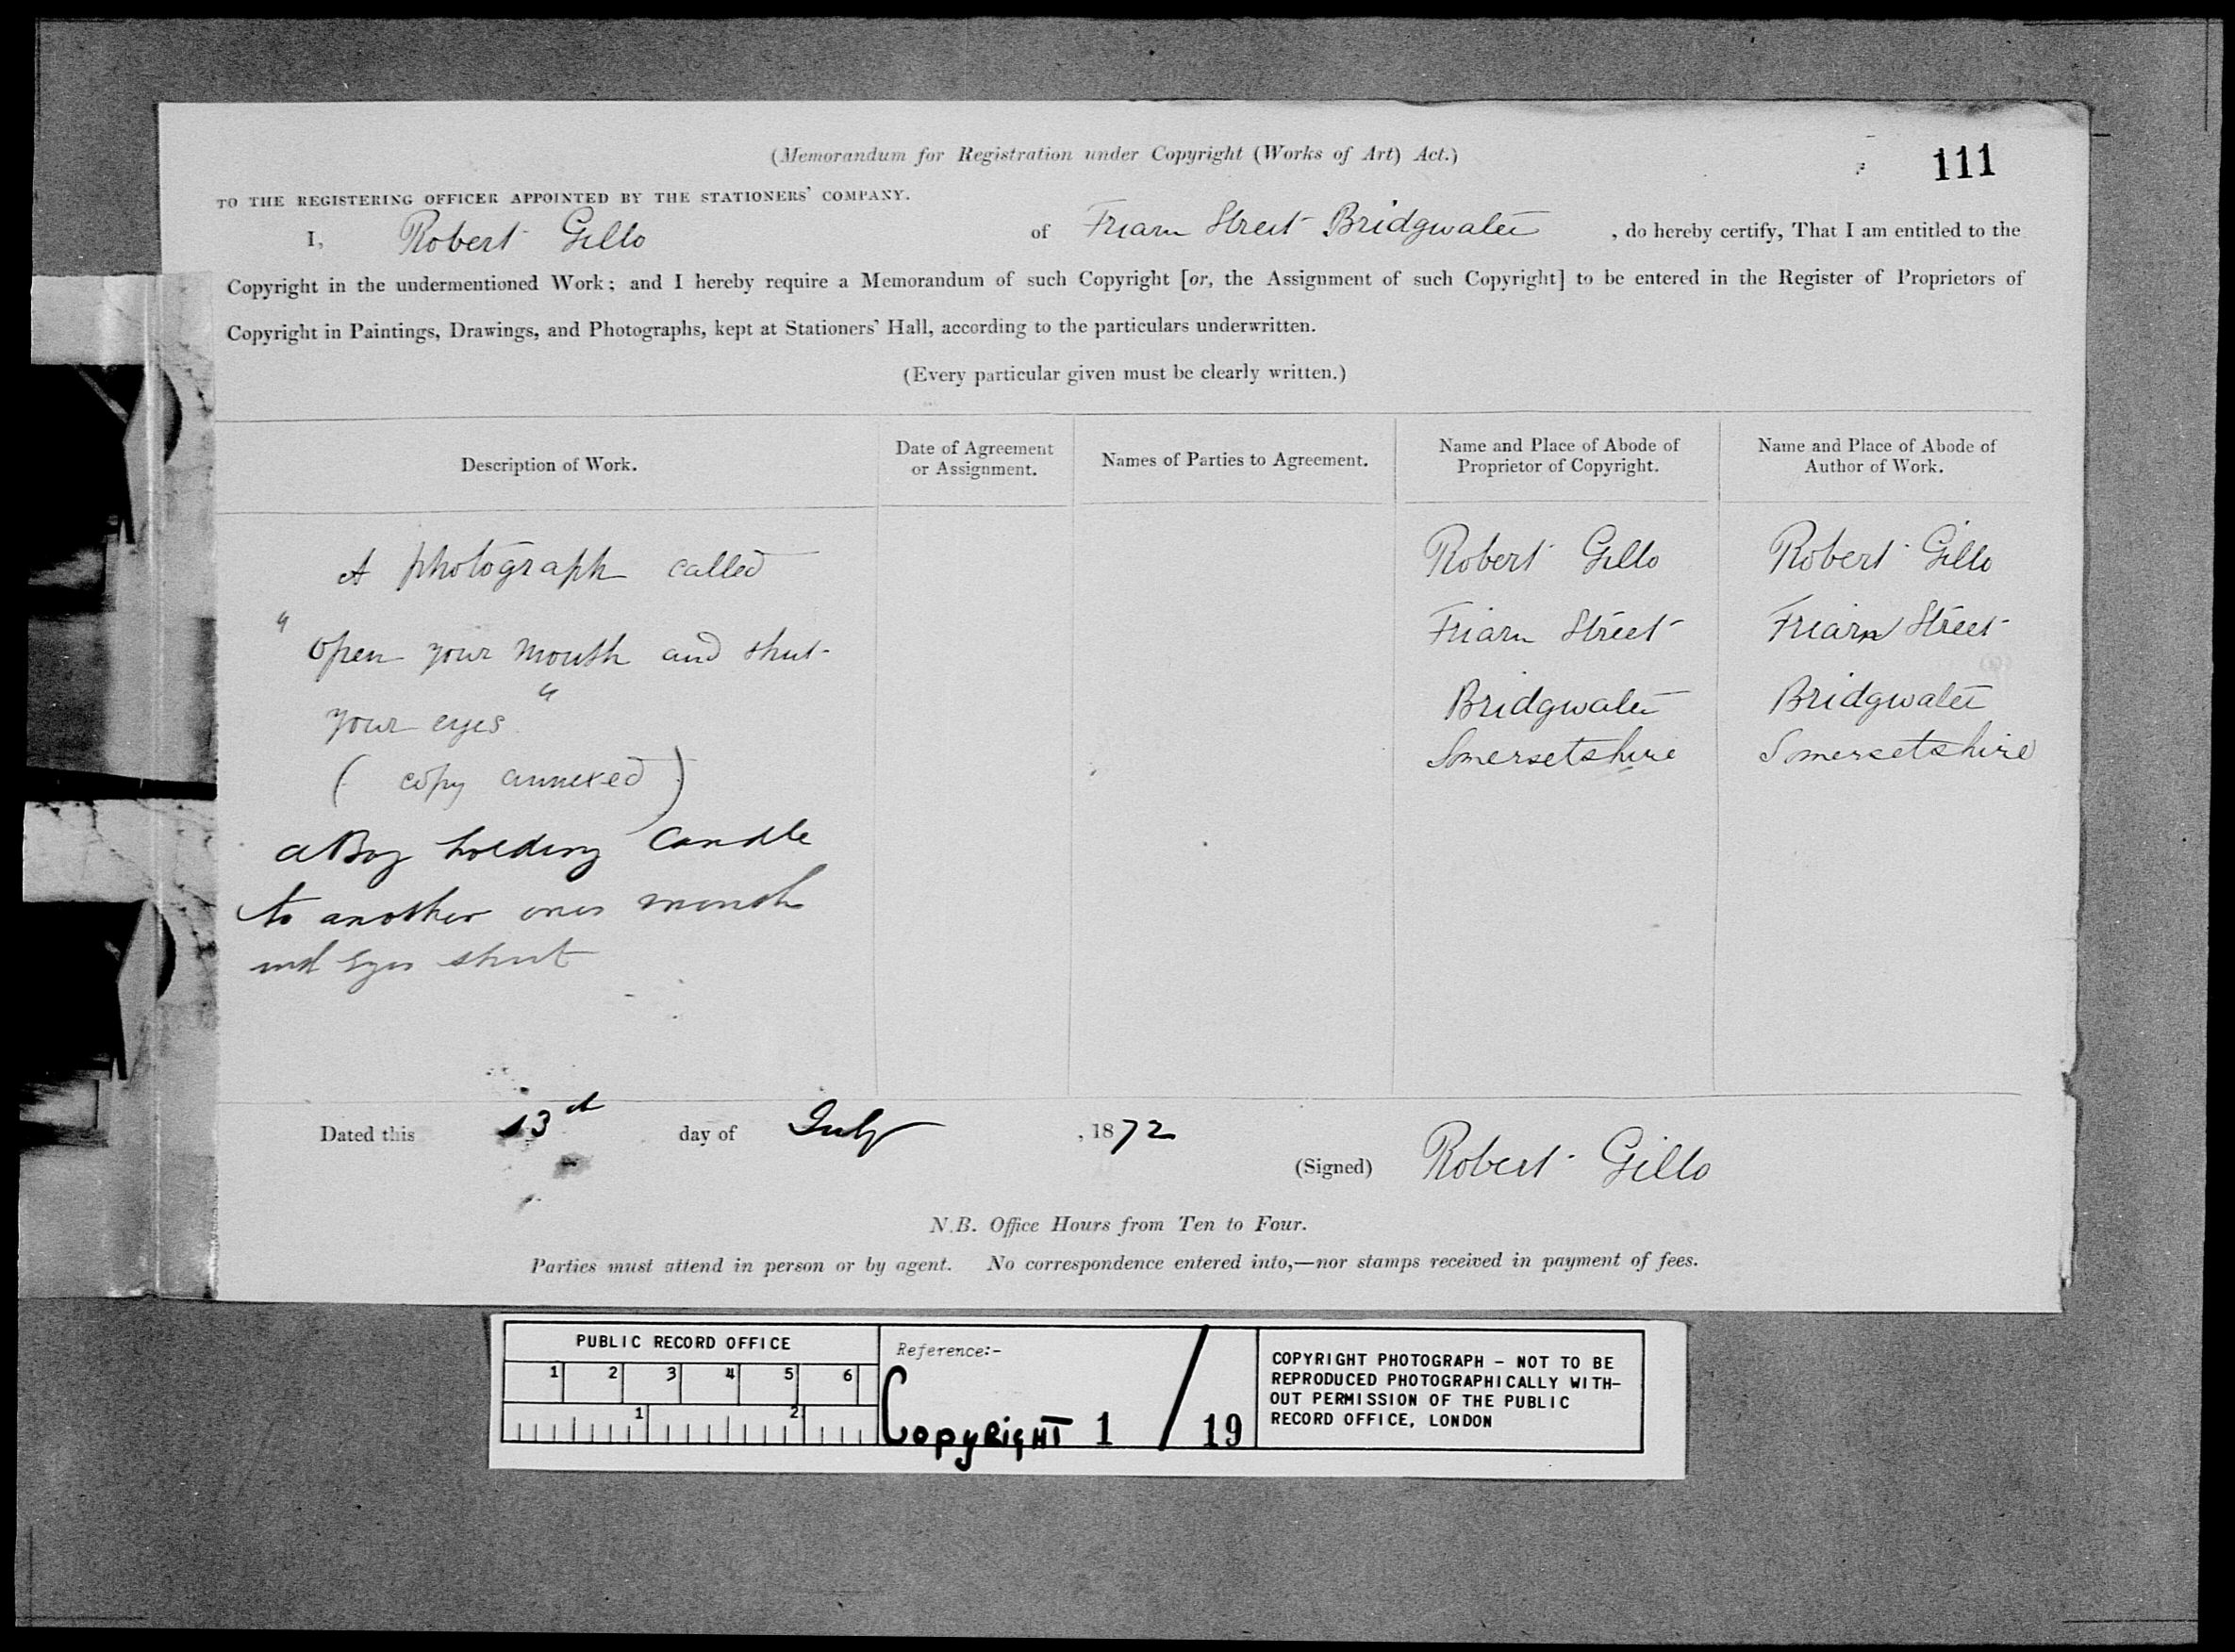 (Memorandum for Registration under Copyright (Works of Art) Act.)
111
TO THE REGISTERING OFFICER APPOINTED BY THE STATIONERS' COMPANY.
I, Robert Gillo of Friarn Street Bridgwater, do hereby certify, That I am entitled to the
Copyright in the undermentioned Work; and I hereby require a Memorandum of such Copyright [or, the Assignment of such Copyright] to be entered in the Register of Proprietors of
Copyright in Paintings, Drawings, and Photographs, kept at Stationers' Hall, according to the particulars underwritten.
(Every particular given must be clearly written.)
Description of Work.
Date of Agreement
or Assignment.
Names of Parties to Agreement.
Name and Place of Abode of
Proprietor of Copyright.
Name and Place of Abode of
Author of Work.
A photograph called
"Open your mouth and shut
your eyes"
(copy annexed)
a Boy holding Candle
to another ones mouth
and Eyes shut
Robert Gillo
Friarn Street
Bridgwater
Somersetshire
Robert Gillo
Friarn Street
Bridgwater
Somersetshire
Dated this 13th day of July, 1872
(Signed) Robert Gillo
N.B. Office Hours from Ten to Four.
Parties must attend in person or by agent. No correspondence entered into,—nor stamps received in payment of fees.
PUBLIC RECORD OFFICE
1 2 3 4 5 6
1 2
Reference:-
Copyright 1 / 19
COPYRIGHT PHOTOGRAPH - NOT TO BE
REPRODUCED PHOTOGRAPHICALLY WITH-
OUT PERMISSION OF THE PUBLIC
RECORD OFFICE, LONDON